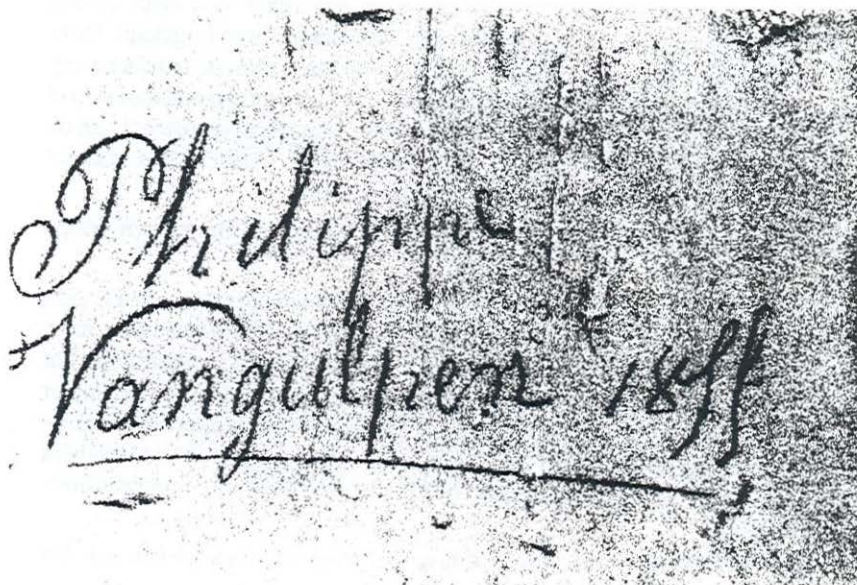 Philippe
Vangulpen